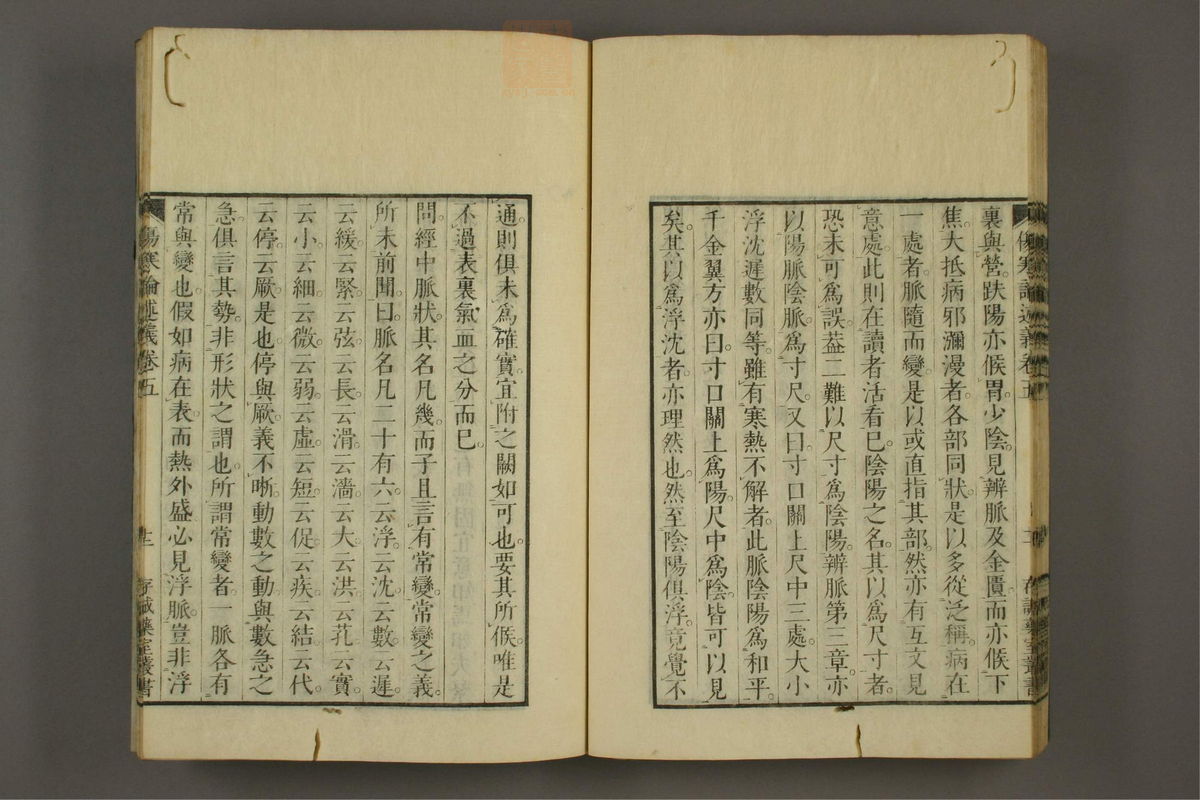 裏與營。趺陽亦候胃。少陰見辨脈及金匱。而亦候下
焦。大抵病邪瀰漫者。各部同狀。是以多從泛稱。病在
一處者。脈隨而變。是以或直指其部。然亦有互文見
意處。此則在讀者活看已。陰陽之名。其以爲尺寸者。
恐未可爲誤。葢二難以尺寸爲陰陽。辨脈第三章。亦
以陽脈陰脈。爲寸尺。又曰。寸口關上尺中三處。大小
浮沈遲數同等。雖有寒熱不解者。此脈陰陽爲和平。
千金翼方亦曰。寸口關上爲陽。尺中爲陰。皆可以見
矣。其以爲浮沈者。亦理然也。然至陰陽俱浮。竟覺不
通。則俱未爲確實。宜附之闕如可也。要其所候。唯是
不過表裏氣血之分而已。
問。經中脈狀。其名凡幾。而子且言有常變。常變之義。
所未前聞。曰。脈名凡二十有六。云浮。云沈。云數。云遲。
云緩。云緊。云弦。云長。云滑。云濇。云大。云洪。云芤。云實。
云小。云細。云微。云弱。云虛。云短。云促。云疾。云結。云代。
云停。云厥。是也。停與厥義不晰。動數之動。與數急之
急。俱言其勢。非形狀之謂也。所謂常變者。一脈各有
常與變也。假如病在表而熱外盛必見浮脈。豈非浮
傷寒論述義卷五
十二
存誠藥室叢書